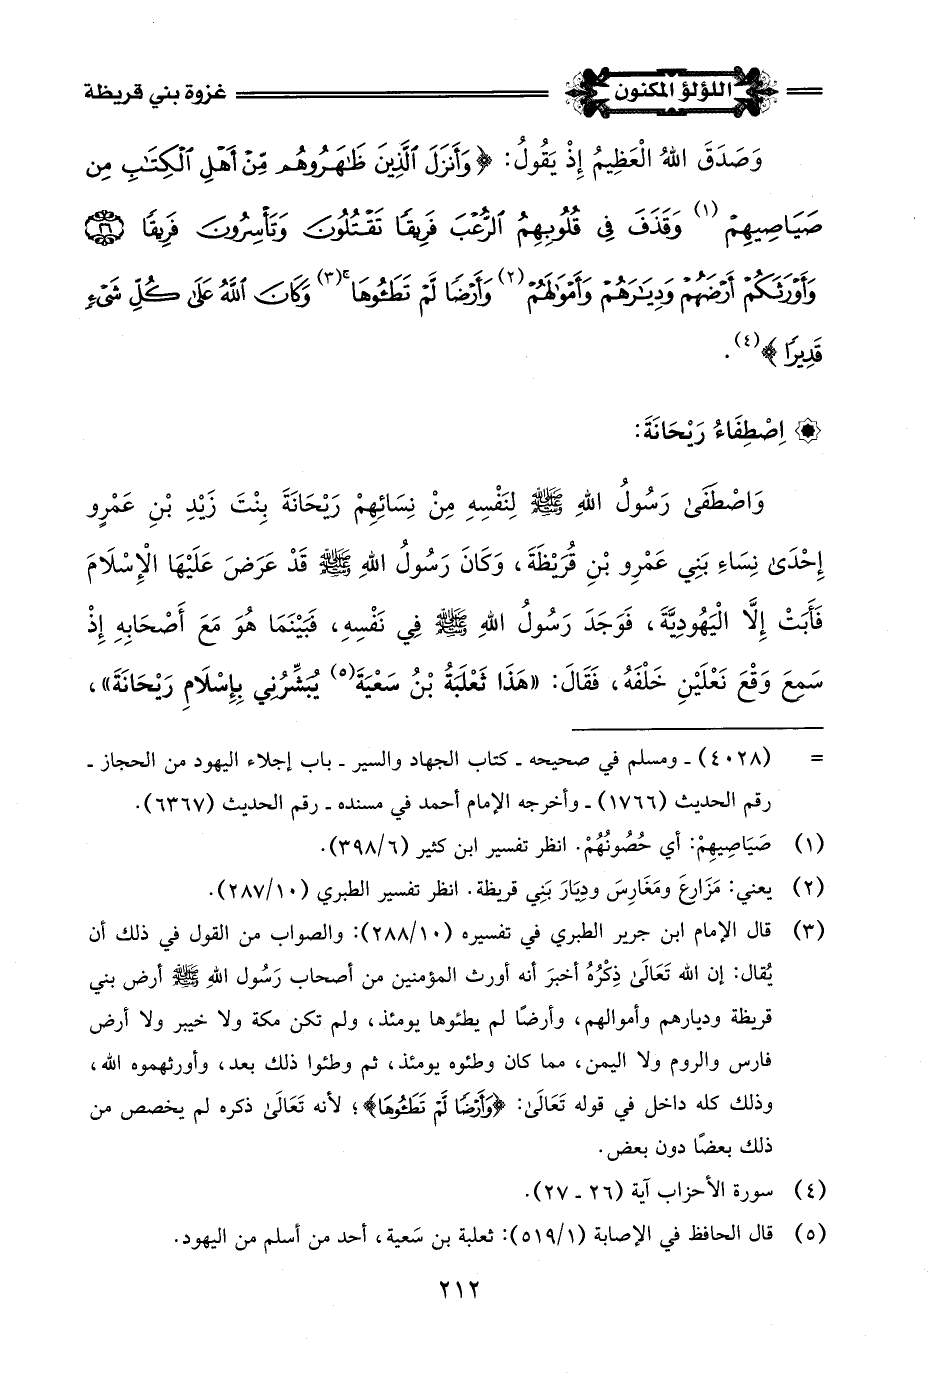 اللؤلؤ المكنون
غزوة بني قريظة
وَصَدَقَ اللهُ الْعَظِيمُ إِذْ يَقُولُ: ﴿وَأَنزَلَ ٱلَّذِينَ ظَٰهَرُوهُم مِّنْ أَهْلِ ٱلْكِتَٰبِ مِن
صَيَاصِيهِمْ (١) وَقَذَفَ فِى قُلُوبِهِمُ ٱلرُّعْبَ فَرِيقًا تَقْتُلُونَ وَتَأْسِرُونَ فَرِيقًا ٢٦
وَأَوْرَثَكُمْ أَرْضَهُمْ وَدِيَٰرَهُمْ وَأَمْوَٰلَهُمْ (٢) وَأَرْضًا لَّمْ تَطَـُٔوهَا (٣) وَكَانَ ٱللَّهُ عَلَىٰ كُلِّ شَىْءٍ
قَدِيرًا﴾ (٤).
اِصْطِفَاءُ رَيْحَانَةَ:
وَاصْطَفَىٰ رَسُولُ اللهِ ﷺ لِنَفْسِهِ مِنْ نِسَائِهِمْ رَيْحَانَةَ بِنْتَ زَيْدِ بْنِ عَمْرٍو
إِحْدَىٰ نِسَاءِ بَنِي عَمْرِو بْنِ قُرَيْظَةَ، وَكَانَ رَسُولُ اللهِ ﷺ قَدْ عَرَضَ عَلَيْهَا الْإِسْلَامَ
فَأَبَتْ إِلَّا الْيَهُودِيَّةَ، فَوَجَدَ رَسُولُ اللهِ ﷺ فِي نَفْسِهِ، فَبَيْنَمَا هُوَ مَعَ أَصْحَابِهِ إِذْ
سَمِعَ وَقْعَ نَعْلَيْنِ خَلْفَهُ، فَقَالَ: «هَذَا ثَعْلَبَةُ بْنُ سَعْيَةَ (٥) يُبَشِّرُنِي بِإِسْلَامِ رَيْحَانَةَ»،
= (٤٠٢٨) ـ ومسلم في صحيحه ـ كتاب الجهاد والسير ـ باب إجلاء اليهود من الحجاز ـ
رقم الحديث (١٧٦٦) ـ وأخرجه الإمام أحمد في مسنده ـ رقم الحديث (٦٣٦٧).
(١) صَيَاصِيهِمْ: أي حُصُونُهُمْ. انظر تفسير ابن كثير (٣٩٨/٦).
(٢) يعني: مَزَارِعَ ومَغَارِسَ ودِيَارَ بَنِي قريظة. انظر تفسير الطبري (٢٨٧/١٠).
(٣) قال الإمام ابن جرير الطبري في تفسيره (٢٨٨/١٠): والصواب من القول في ذلك أن
يُقال: إن الله تَعَالَىٰ ذِكْرُهُ أخبرَ أنه أورث المؤمنين من أصحاب رَسُول اللهِ ﷺ أرض بني
قريظة وديارهم وأموالهم، وأرضًا لم يطئوها يومئذ، ولم تكن مكة ولا خيبر ولا أرض
فارس والروم ولا اليمن، مما كان وطئوه يومئذ، ثم وطئوا ذلك بعد، وأورثهموه الله،
وذلك كله داخل في قوله تَعَالَىٰ: ﴿وَأَرْضًا لَّمْ تَطَـُٔوهَا﴾؛ لأنه تَعَالَىٰ ذكره لم يخصص من
ذلك بعضًا دون بعض.
(٤) سورة الأحزاب آية (٢٦ ـ ٢٧).
(٥) قال الحافظ في الإصابة (٥١٩/١): ثعلبة بن سَعية، أحد من أسلم من اليهود.
٢١٢